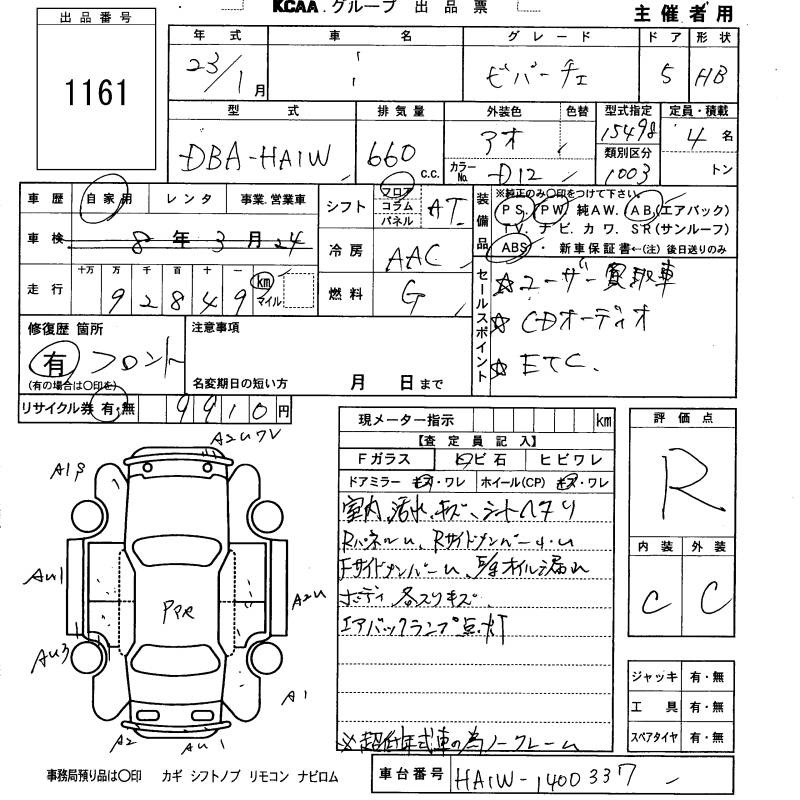 KCAA.グループ 出品票 主催者用
出品番号
1161
年式 車名 グレード ドア 形状
23/1月 ビバーチェ 5 HB
型式 排気量 外装色 色替 型式指定 定員・積載
DBA-HA1W 660 c.c. アオ 15498 4名
カラーNo. D12 類別区分 1003 トン
車歴 自家用 レンタ 事業.営業車
シフト フロア コラム パネル AT
車検 8年3月24
冷房 AAC
走行 十万 万 千 百 十 一
92849 km マイル
燃料 G
装備品 ※純正のみ○印をつけて下さい。
PS. PW. 純AW. AB.(エアバック)
TV. ナビ. カワ. SR(サンルーフ)
ABS ・ 新車保証書←(注) 後日送りのみ
セールスポイント
☆ユーザー買取車
☆CDオーディオ
☆ETC.
修復歴 箇所
有 フロント
(有の場合は○印を)
注意事項
名変期日の短い方 月 日まで
リサイクル券 有・無 9910円
現メーター指示 km
【査定員記入】
Fガラス トビ石 ヒビワレ
ドアミラー キズ・ワレ ホイール(CP) キズ・ワレ
室内 汚れ、キズ、シートヘタリ
RパネルU、RサイドメンバーU
FサイドメンバーU、オイル漏れ
ボディ 各スリキズ
エアバックランプ点灯
※超低年式車の為ノークレーム
評価点
R
内装 外装
C C
ジャッキ 有・無
工具 有・無
スペアタイヤ 有・無
A2Uワレ
A1P
AU1
A2U
PPR
AU3
A1
A2
AU1
事務局預り品は○印 カギ シフトノブ リモコン ナビロム
車台番号 HA1W-1400337